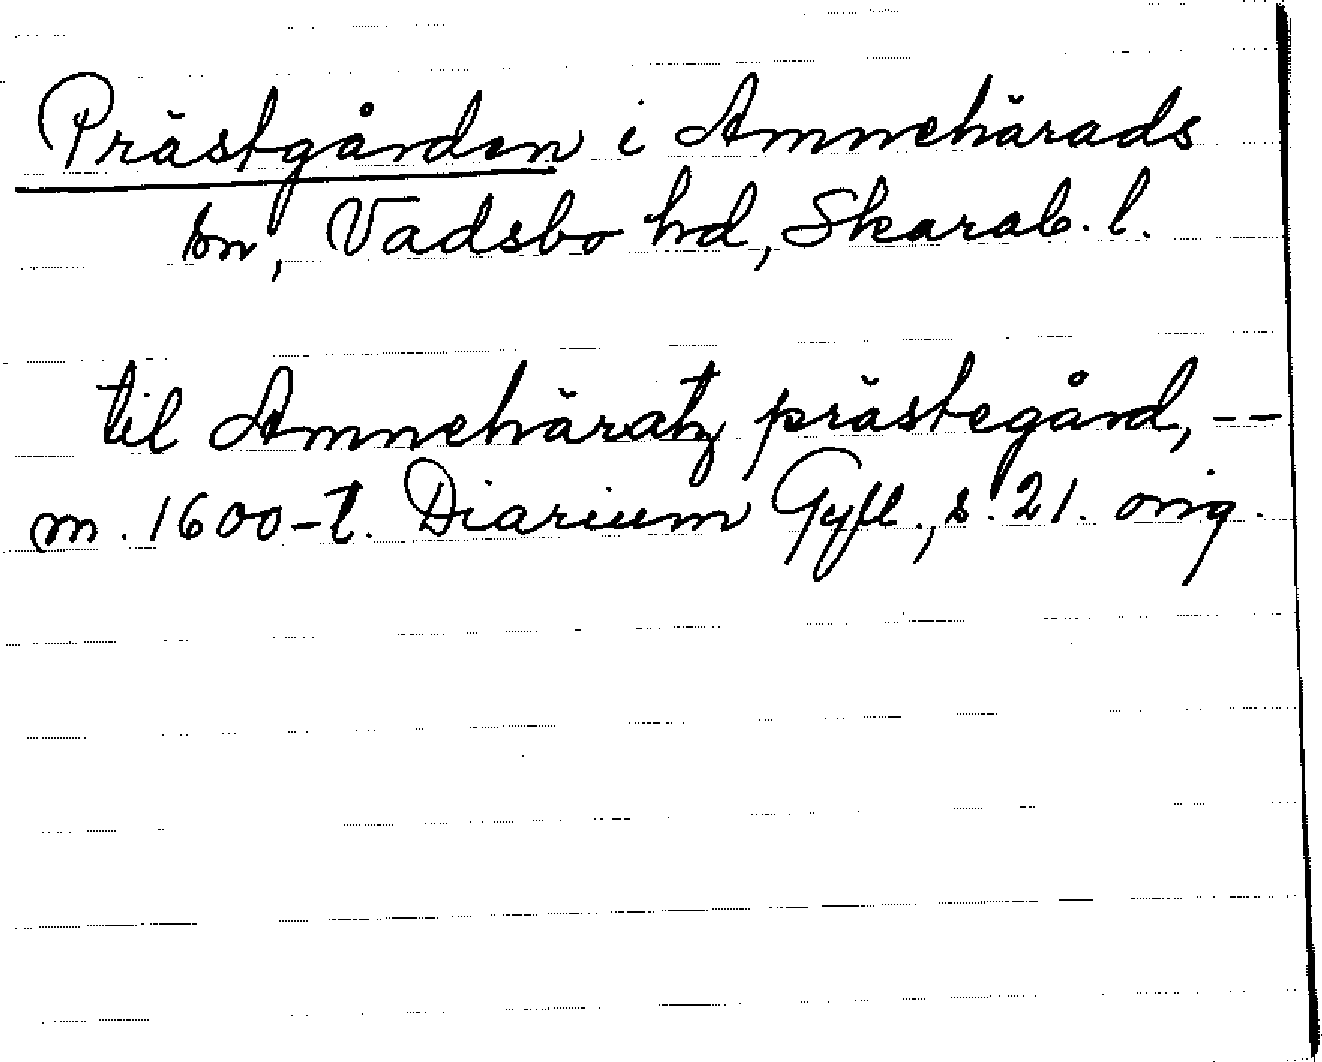 Prästgården i Amnehärads
sn, Vadsbo hd, Skarab. l.
til Amnehäratz prästegård, --
m. 1600-t. Diarium Gyll., s. 21. orig.